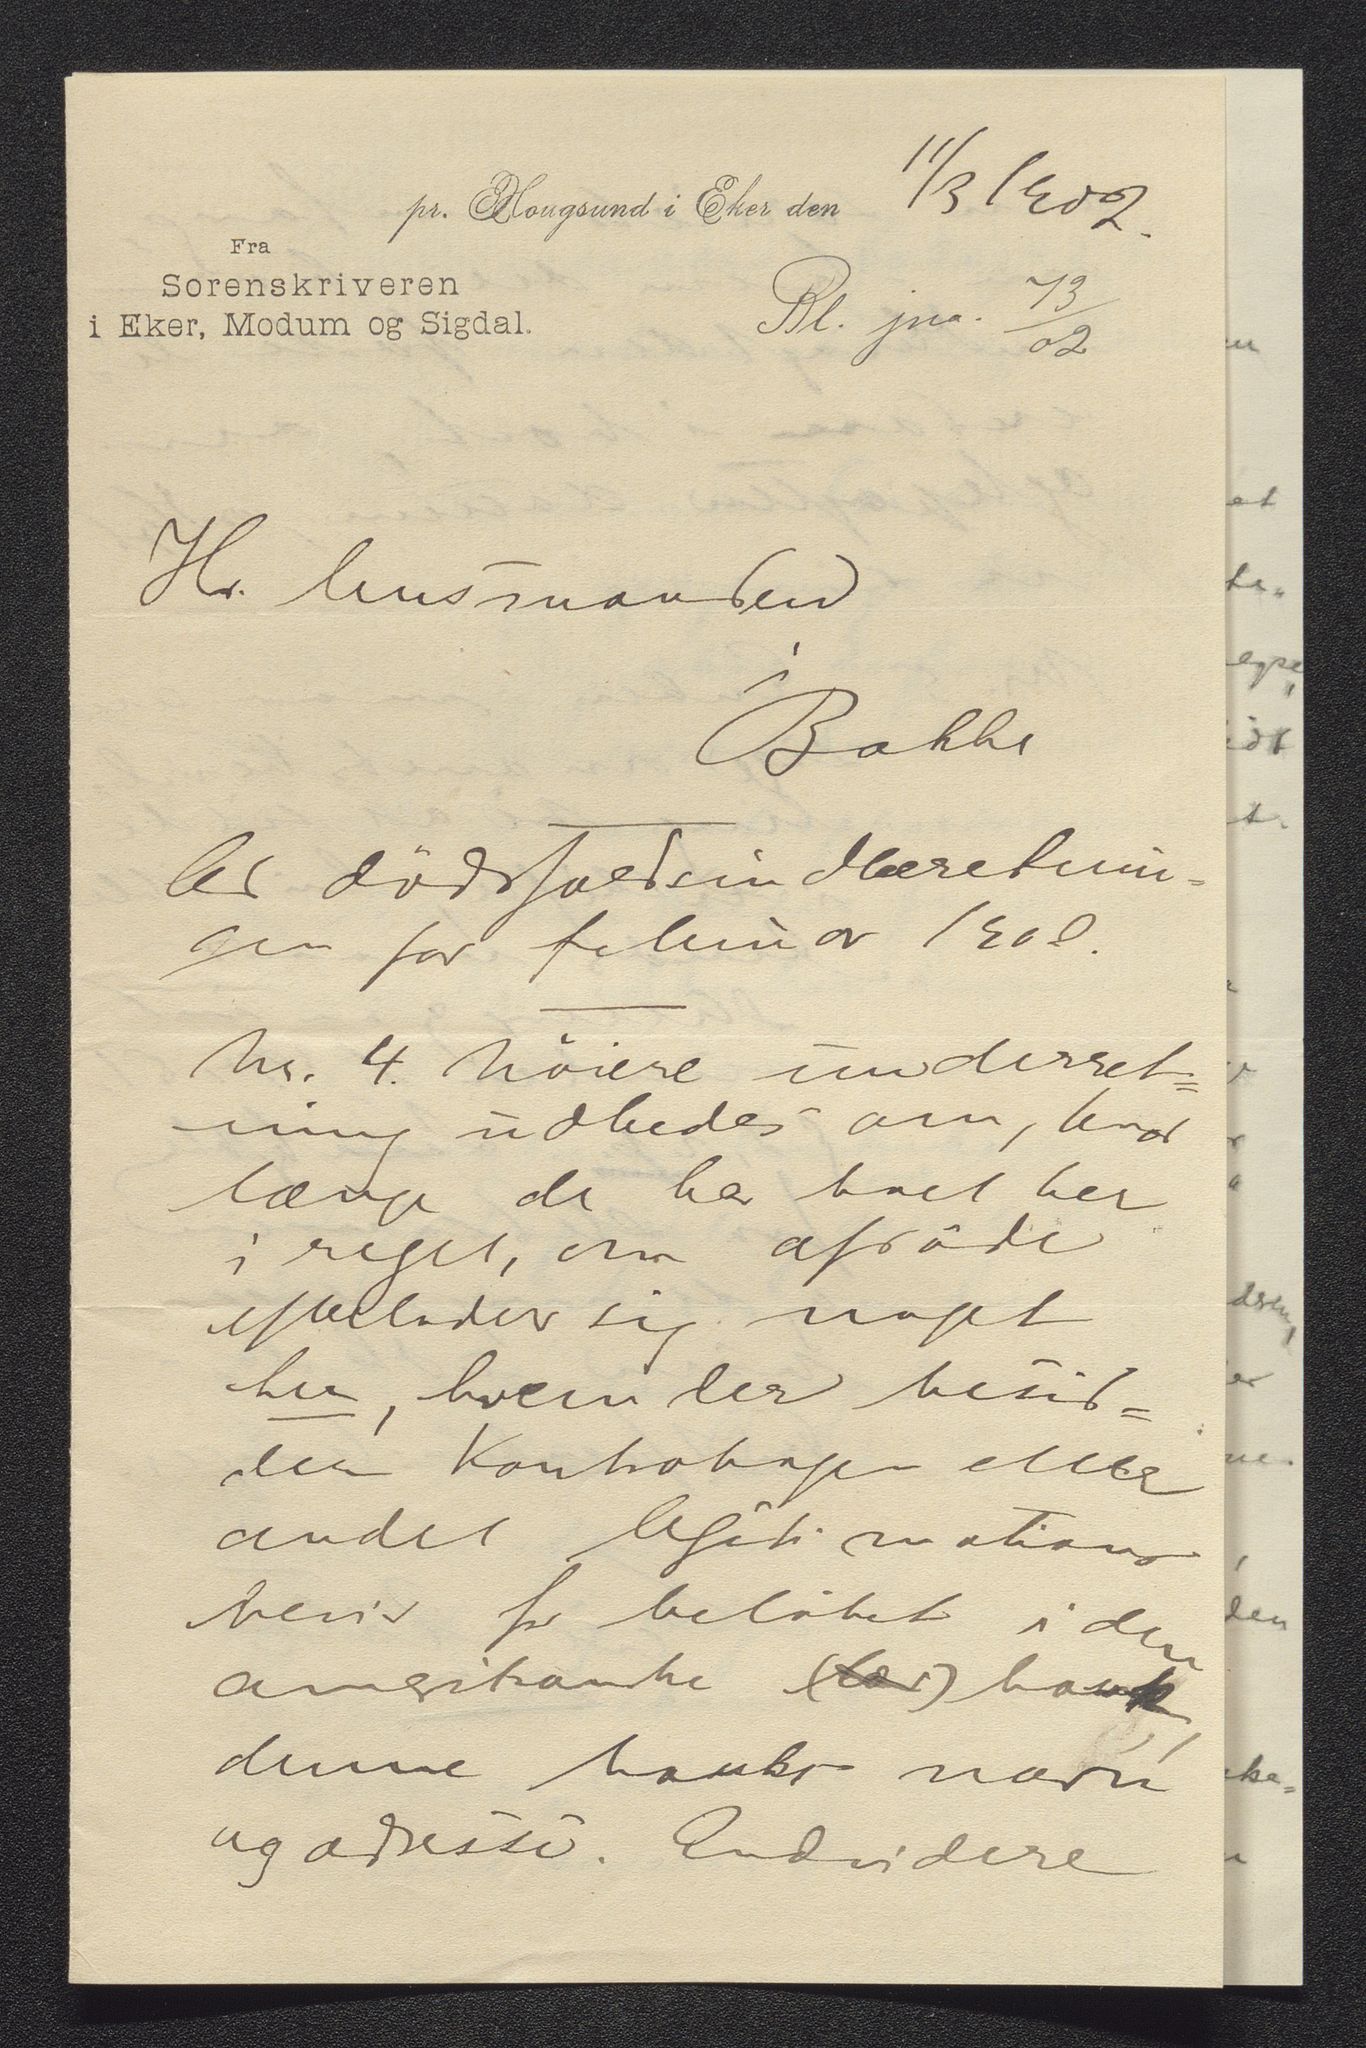 pr. Hougsund i Eker den 11/3 1902.
Fra
Sorenskriveren
i Eker, Modum og Sigdal.
Bl. jno. 73/02
Hr. lensmanden
i
Bakke
Ad dödsfaldsindberetnin-
gen for februar 1902.
Nr. 4. Nöiere underret=
ning udbedes om, hvor
længe de har boet her
i riget, om afdöde
efterlader sig noget
her, hvem der besid=
der kontrabogen eller
andet legitimations
bevis for belöbet i den
amerikanske bank,
denne banks navn
og adresse. Endvidere